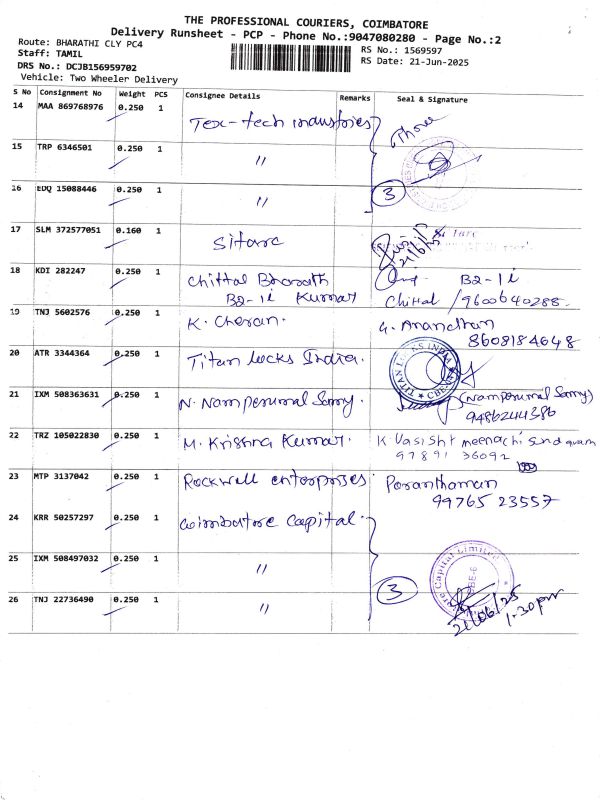 THE PROFESSIONAL COURIERS, COIMBATORE
Delivery Runsheet - PCP - Phone No.:9047080280 - Page No.:2
Route: BHARATHI CLY PC4
Staff: TAMIL
DRS No.: DCJB156959702
Vehicle: Two Wheeler Delivery
RS No.: 1569597
RS Date: 21-Jun-2025
S No Consignment No Weight PCS Consignee Details Remarks Seal & Signature
14 MAA 869768976 0.250 1 Tex-tech industries
15 TRP 6346501 0.250 1 〃
16 EDQ 15088446 0.250 1 〃 3
17 SLM 372577051 0.160 1 Sitarc
18 KDI 282247 0.250 1 Chittal Bharath B2-1i
B2-1i Kumar Chittal / 9600640288.
19 TNJ 5602576 0.250 1 K. Cheran. G. Anandhan
8608184648
20 ATR 3344364 0.250 1 Titan locks India.
21 IXM 508363631 0.250 1 N. Namperumal Samy. (Namperumal Samy)
9486244386
22 TRZ 105022830 0.250 1 M. Krishna Kumar. K Vasisht meenachi sundaram
97891 36092
23 MTP 3137042 0.250 1 Rockwell enterprises Paranthaman
99765 23557
24 KRR 50257297 0.250 1 Coimbatore Capital.
25 IXM 508497032 0.250 1 〃
26 TNJ 22736490 0.250 1 〃 3
21/06/25
1.30 pm